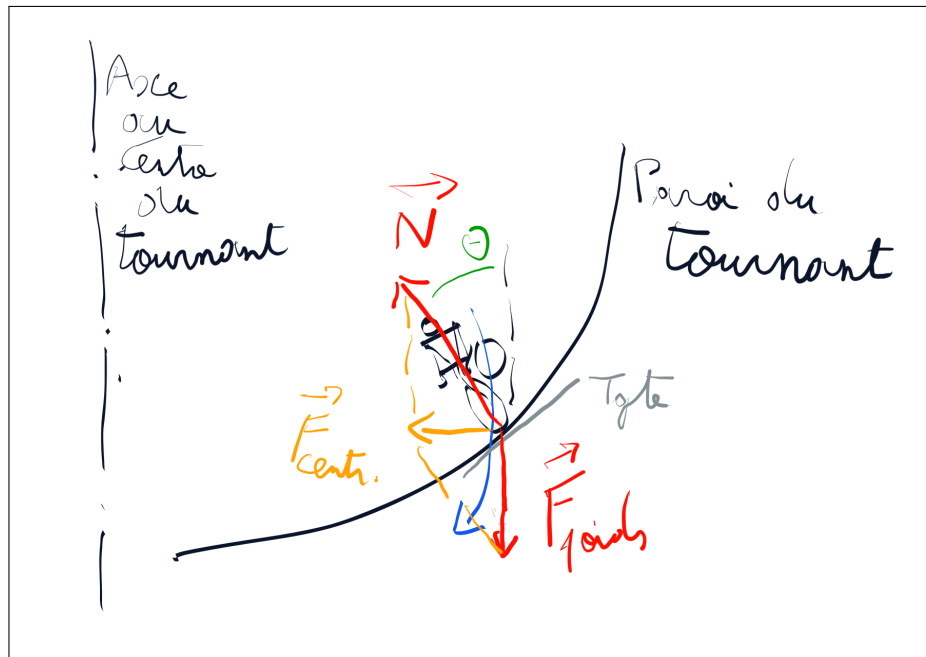 Axe
ou
Centre
du
tournant
N
θ
Paroi du
tournant
Tgte
F centr.
F poids